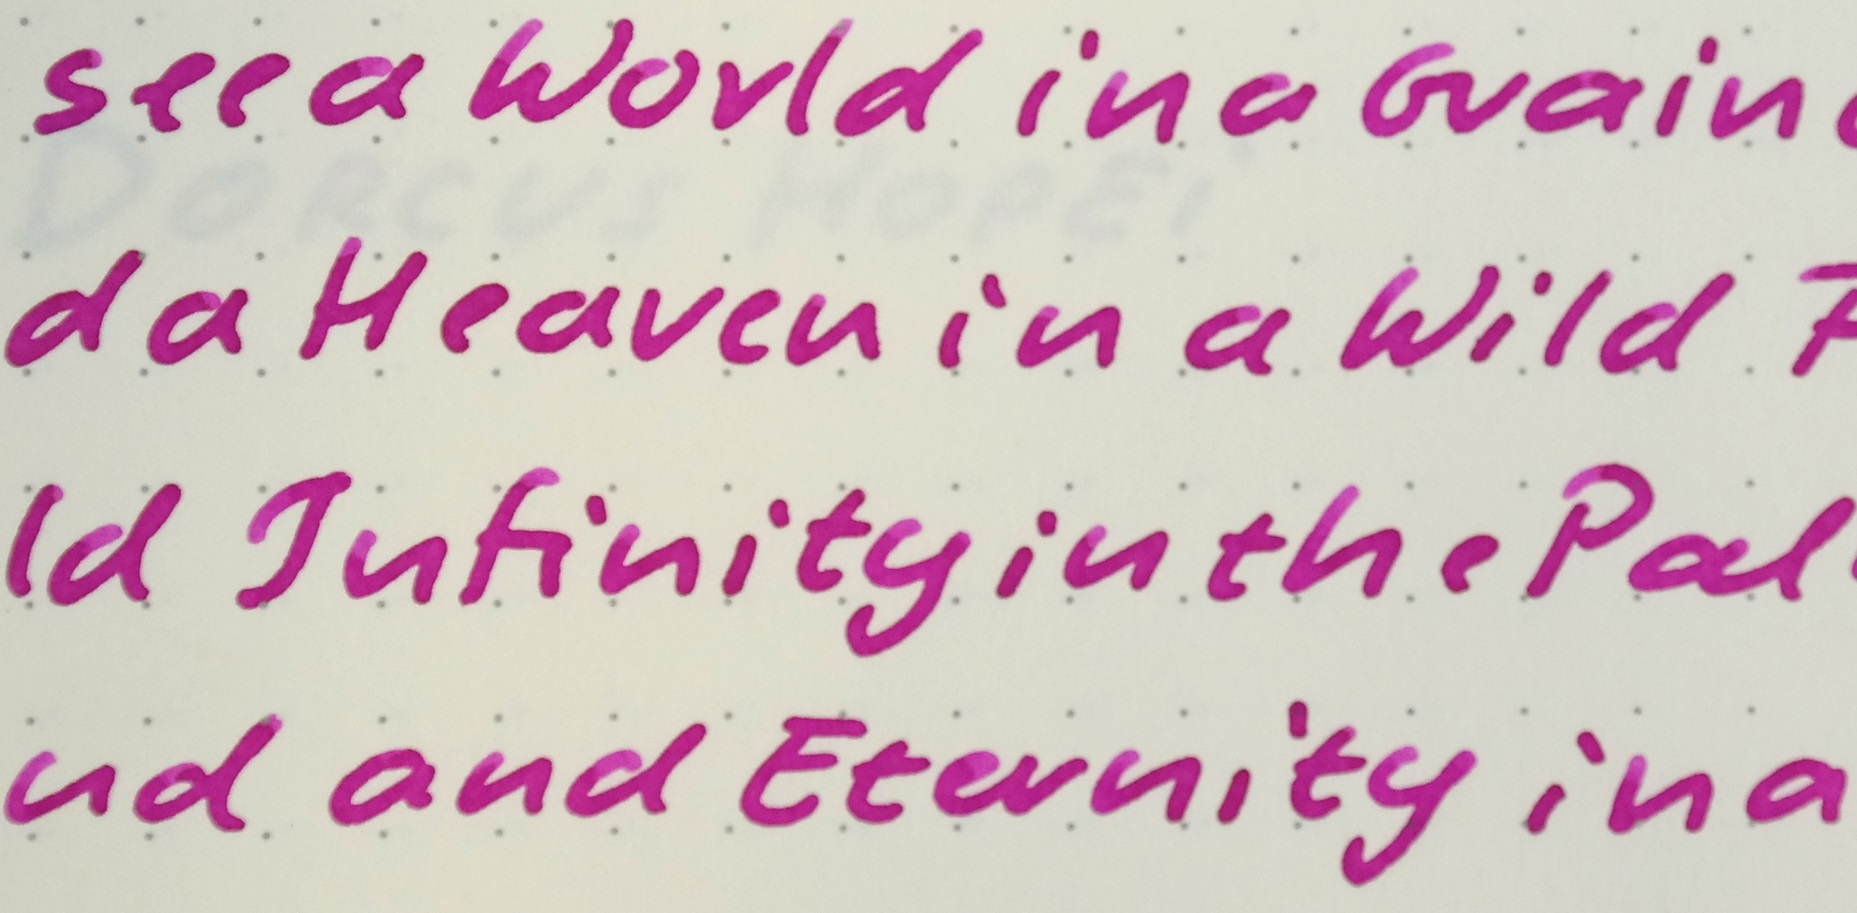 see a World in a Grain
Dorcus Hopei
d a Heaven in a Wild F
ld Infinity in the Pal
nd and Eternity in a